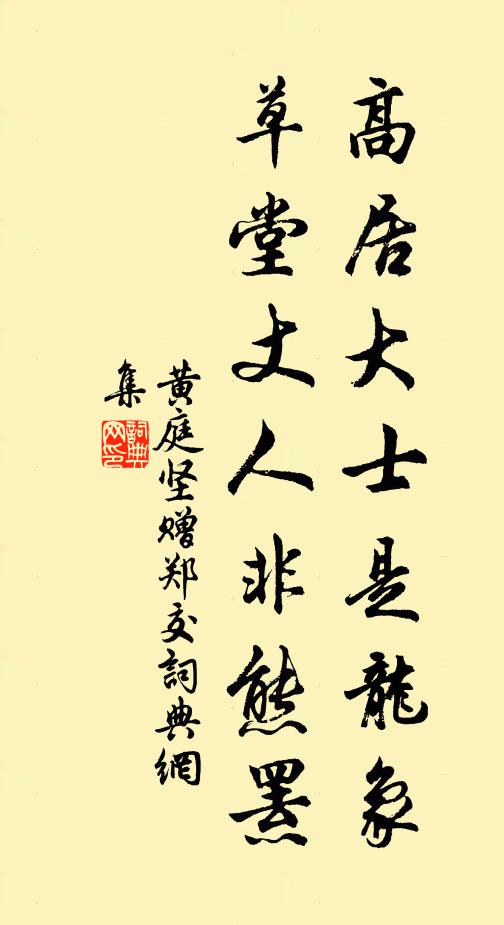 高居大士是龍象
草堂丈人非熊羆
黄庭坚赠郑交詞典網
集
詞典網印